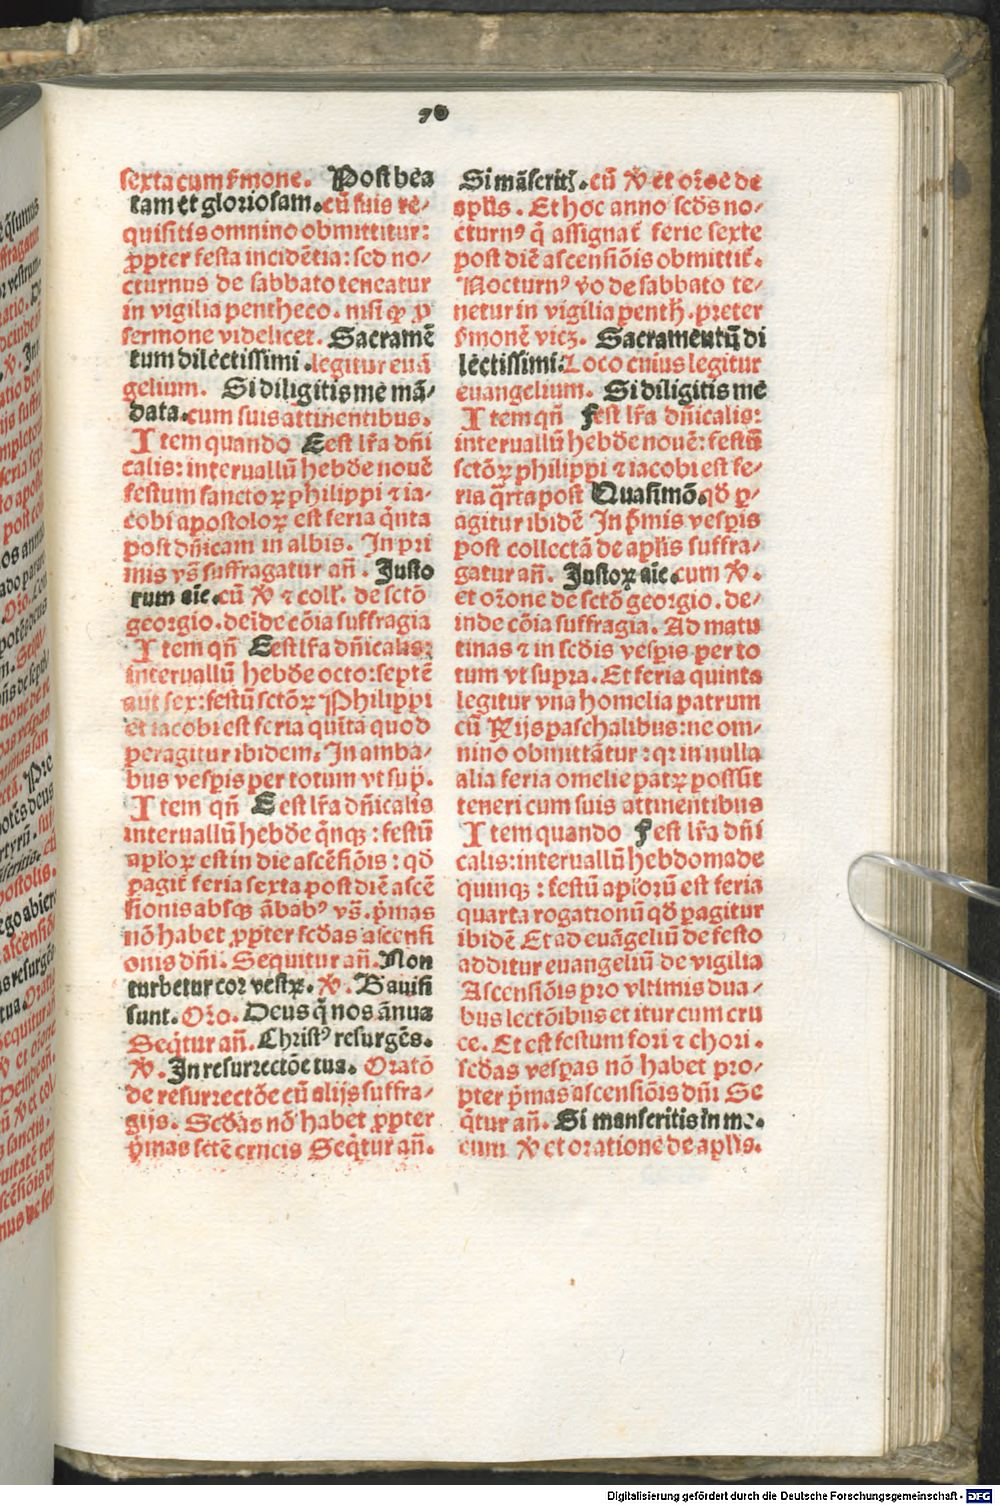 70
sexta cum s̄mone. Post bea
tam et gloriosam. cū suis re⸗
quisitis omnino obmittitur:
ꝓpter festa incidētia: sed no⸗
cturnus de sabbato teneatur
in vigilia pentheco. nisi ꝙ ꝓ
sermone videlicet. Sacramē
tum dilectissimi. legitur euā
gelium. Si diligitis me mā⸗
data. cum suis attinentibus.
Item quando E est lr̄a dn̄i
calis: interuallū hebd̄e nouē
festum sanctoꝝ philippi ⁊ ia⸗
cobi apostoloꝝ est feria q̄nta
post dn̄icam in albis. In pri
mis vs̄ suffragatur an̄. Justo
rum aīe. cū ℣ ⁊ coll'. de sctō
georgio. deīde cōia suffragia
Item qn̄ E est lr̄a dn̄icalis:
interuallū hebd̄e octo: septē
aut sex: festū sctōꝝ Philippi
et iacobi est feria quīta quod
peragitur ibidem. In amba⸗
bus vesp̄is per totum vt sup̄.
Item qn̄ E est lr̄a dn̄icalis
interuallū hebd̄e q̄nqꝫ: festū
aplo̅ꝝ est in die ascēsiōis: qd̄
ꝑagit̄ feria sexta post diē ascē
sionis absqꝫ ābabꝰ vs̄. p̄mas
nō habet ꝓpter scd̄as ascensi
onis dn̄i. Sequitur an̄. Non
turbetur cor vestrꝝ. ℣. Gauisi
sunt. Oro̅. Deus q̄ nos ānua
Seq̄tur an̄. Christꝰ resurgēs.
℣. In resurrectōe tua. Oratō
de resurrectōe cū alijs suffra⸗
gijs. Scd̄as nō habet ꝓpter
p̄mas sctē crucis Seq̄tur an̄.
Si māserit̄. cū ℣ et orōe de
aplīs. Et hoc anno scd̄s no⸗
cturnꝰ q̄ assignat̄ ferie sexte
post diē ascensiōis obmittit̄.
Nocturnꝰ vo̅ de sabbato te⸗
netur in vigilia penth̄. preter
s̄monē vicꝫ. Sacramentū di
lectissimi: Loco cuius legitur
euangelium. Si diligitis me
Item qn̄ F est lr̄a dn̄icalis:
interuallū hebd̄e nouē: festū
sctōꝝ philippi ⁊ iacobi est fe⸗
ria q̄rta post Quasimō. qd̄ ꝑ⸗
agitur ibidē In p̄mis vesp̄is
post collectā de aplīs suffra⸗
gatur an̄. Justoꝝ aīe. cum ℣.
et orōne de sctō georgio. de⸗
inde cōia suffragia. Ad matu
tinas ⁊ in scd̄is vesp̄is per to
tum vt supra. Et feria quinta
legitur vna homelia patrum
cū Rijs paschalibus: ne om⸗
nino obmittātur: qr in nulla
alia feria omelie patrꝝ possūt
teneri cum suis attinentibus
Item quando F est lr̄a dn̄i
calis: interuallū hebdomade
quinqꝫ: festū aplo̅rū est feria
quarta rogationū qd̄ ꝑagitur
ibidē Et ad euāgeliū de festo
additur euangeliū de vigilia
Ascensiōis pro vltimis dua⸗
bus lectōibus et itur cum cru
ce. Et est festum fori ⁊ chori.
scd̄as vesꝑas nō habet pro⸗
pter p̄mas ascensiōis dn̄i Se
q̄tur an̄. Si manseritis in me.
cum ℣ et oratione de aplīs.
Digitalisierung gefördert durch die Deutsche Forschungsgemeinschaft - DFG